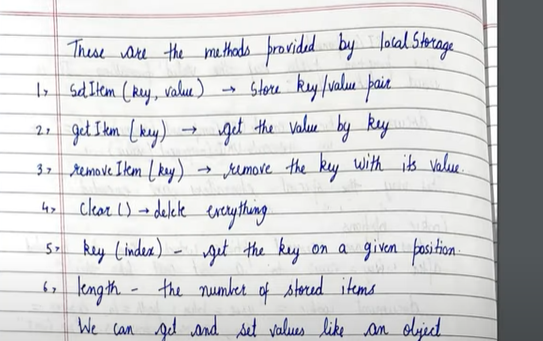 These are the methods provided by local Storage
1, Set Item (key, value) → Store key/value pair
2, get Item (key) → get the value by key
3, remove Item (key) → remove the key with its value.
4, Clear () → delete everything
5, key (index) - get the key on a given position.
6, length - the number of stored items
We can get and set values like an object